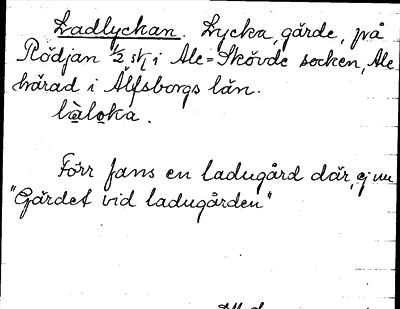 Ladlyckan. Lycka, gärde, på
Rödjan ½ sk/l i Ale=Skövde socken, Ale
härad i Älfsborgs län.
là̱lo̱ka.
Förr fans en ladugård där, ej nu
"Gärdet vid ladugården"